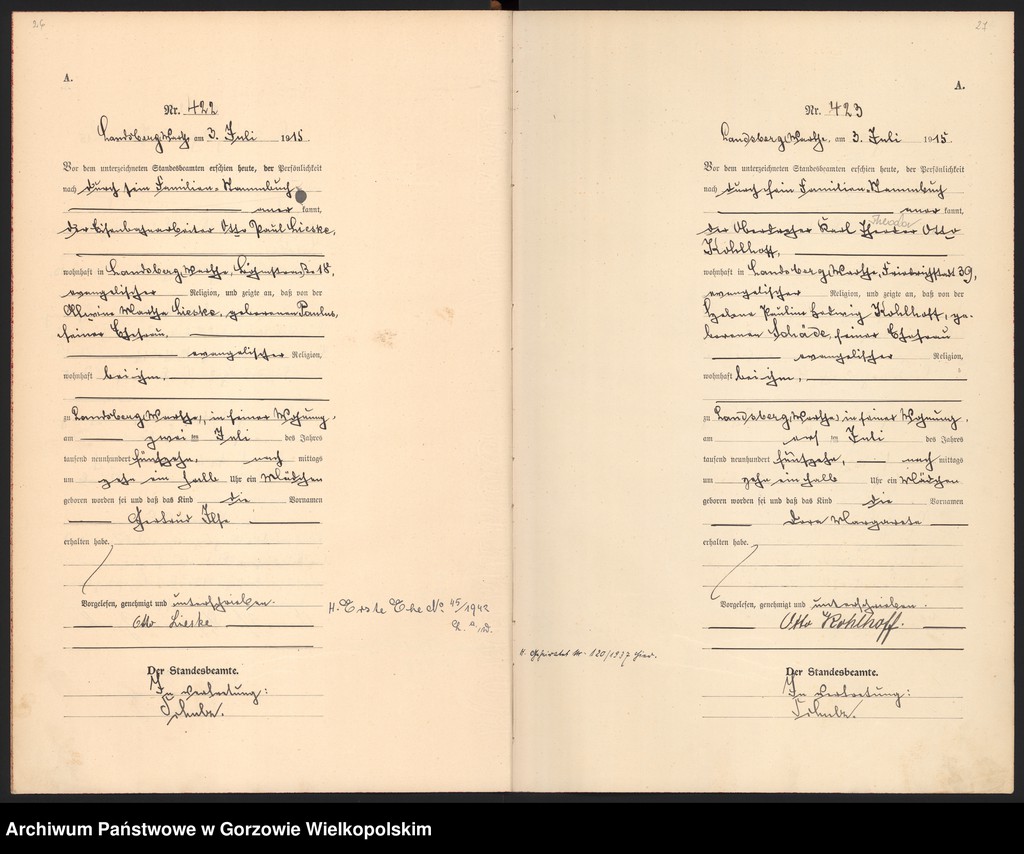 26
A.
Nr. 422
Landsberg, Warthe am 3. Juli 1915.
Vor dem unterzeichneten Standesbeamten erschien heute, der Persönlichkeit
nach durch sein Familien-Stammbuch
aner kannt,
der Eisenbahnarbeiter Otto Paul Lieske,
wohnhaft in Landsberg, Warthe, 18,
evangelischer Religion, und zeigte an, daß von der
Alwine Martha Lieske, geborenen Paulus,
seiner Ehefrau,
evangelischer Religion,
wohnhaft bei ihm,
zu Landsberg, Warthe, in seiner Wohnung,
am zwei ten Juli des Jahres
tausend neunhundert fünfzehn, nach mittags
um zehn ein halb Uhr ein Mädchen
geboren worden sei und daß das Kind die Vornamen
Gertrud Ilse
erhalten habe.
Vorgelesen, genehmigt und unterschrieben.
Otto Lieske
Der Standesbeamte.
In Vertretung:
H. Erste Ehe No 45/1942
27
A.
Nr. 423
Landsberg, Warthe, am 3. Juli 1915.
Vor dem unterzeichneten Standesbeamten erschien heute, der Persönlichkeit
nach durch sein Familien-Stammbuch
aner kannt,
Theodor
der Karl Otto
Kohlhoff,
wohnhaft in Landsberg, Warthe, Friedrichstadt 39,
evangelischer Religion, und zeigte an, daß von der
Helene Pauline Hedwig Kohlhoff, ge-
borenen Schade, seiner Ehefrau
evangelischer Religion,
wohnhaft bei ihm,
zu Landsberg, Warthe, in seiner Wohnung,
am ers ten Juli des Jahres
tausend neunhundert fünfzehn, nach mittags
um zehn ein halb Uhr ein Mädchen
geboren worden sei und daß das Kind die Vornamen
Dora Margarete
erhalten habe.
Vorgelesen, genehmigt und unterschrieben.
Otto Kohlhoff.
H. Geheiratet Nr. 120/1937 hier.
Der Standesbeamte.
In Vertretung:
Archiwum Państwowe w Gorzowie Wielkopolskim